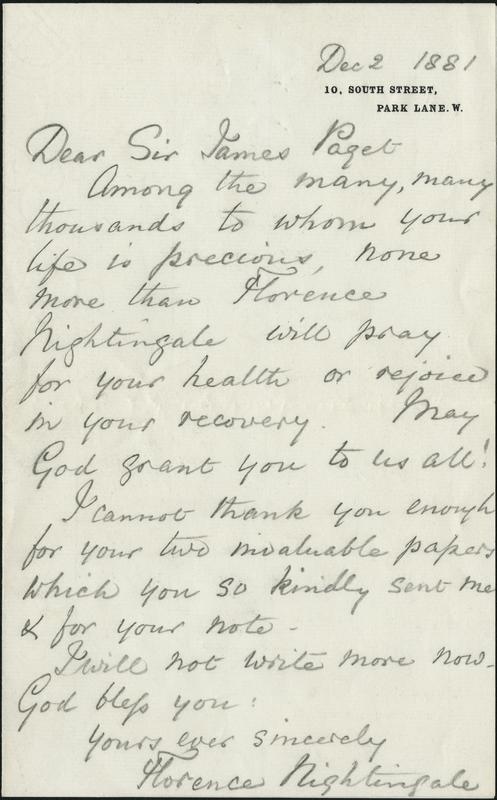 Dec 2 1881
10, SOUTH STREET,
PARK LANE. W.
Dear Sir James Paget
Among the many, many
thousands to whom your
life is precious, none
more than Florence
Nightingale will pray
for your health or rejoice
in your recovery. May
God grant you to us all!
I cannot thank you enough
for your two invaluable papers
which you so kindly sent me
& for your note -
I will not write more now -
God bless you:
yours ever sincerely
Florence Nightingale